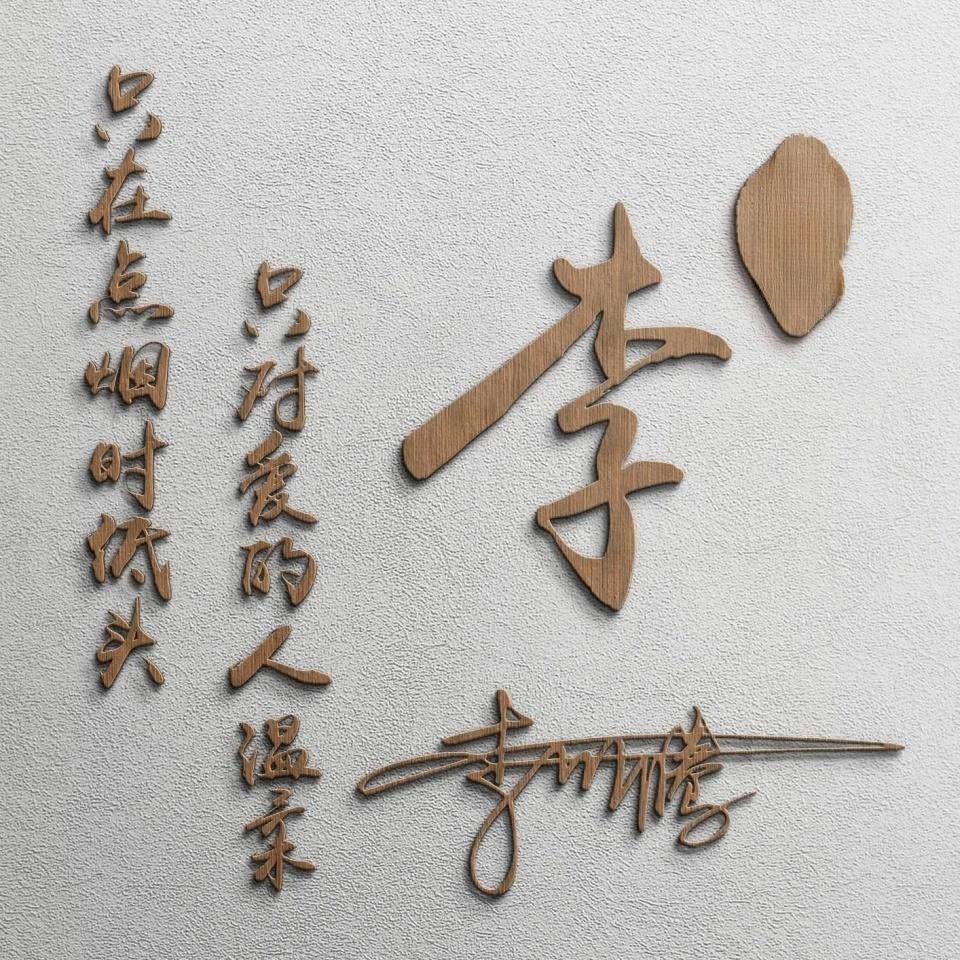 只在点烟时低头
只对爱的人温柔
李